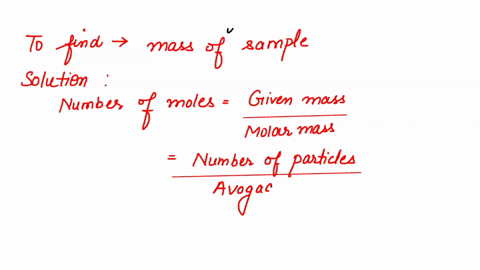 To find → mass of sample
Solution :
Number of moles = Given mass
Molar mass
= Number of particles
Avogac